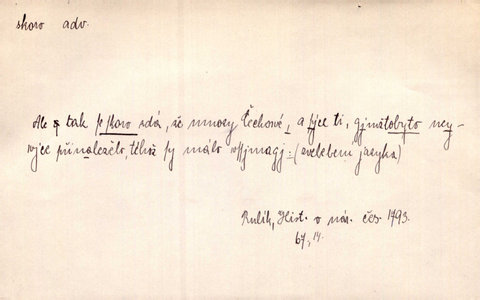 skoro adv.
Ale tak se skoro zdá, že mnozy Čechowé, a sýce ti, gjmžtobyto ney-
wjce přinaleželo, téhož sy málo wssjmagj: (zvelebení jazyka)
Rulík, Hist. o nár. čes. 1793.
67, 14.